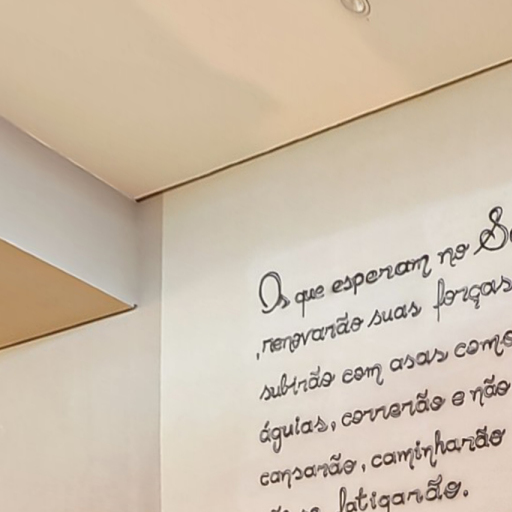 Os que esperam no
,renovarão suas forças
subirão com asas como
águias, correrão e não
cansarão, caminharão
fatigarão.